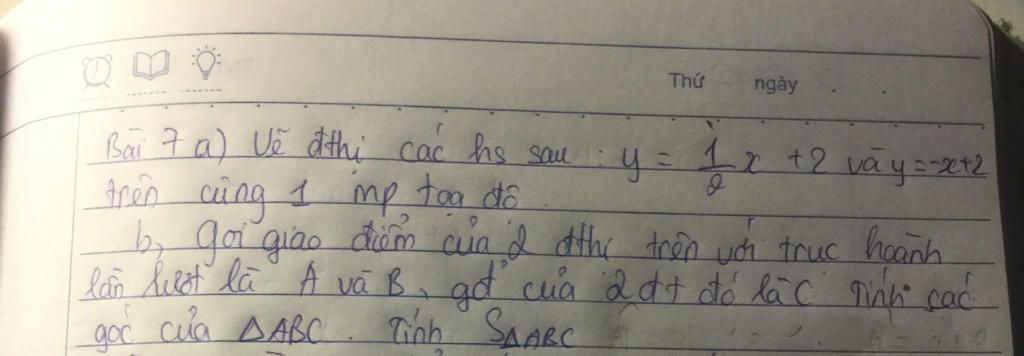 Thứ ngày . .
Bài 7 a) Vẽ đthị các hs sau : y = 1/2 x + 2 và y = -x+2
trên cùng 1 mp toạ độ
b, gọi giao điểm của 2 đthị trên với trục hoành
lần lượt là A và B, gđ của 2 đt đó là C Tính các
góc của ΔABC. Tính SΔABC